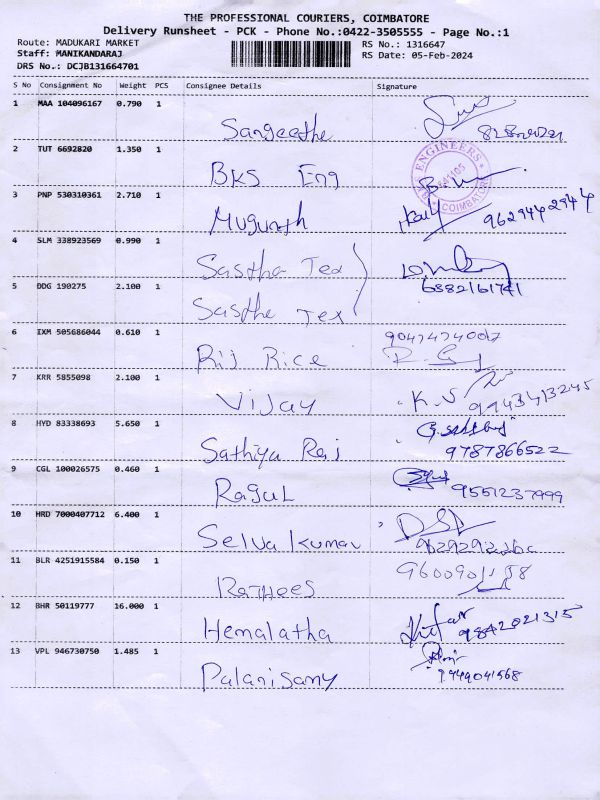 THE PROFESSIONAL COURIERS, COIMBATORE
Delivery Runsheet - PCK - Phone No.:0422-3505555 - Page No.:1
Route: MADUKARI MARKET
RS No.: 1316647
Staff: MANIKANDARAJ
RS Date: 05-Feb-2024
DRS No.: DCJB131664701
S No Consignment No Weight PCS Consignee Details Signature
1 MAA 104096167 0.790 1
Sangeethe
2 TUT 6692820 1.350 1
ENGINEERS
641105
COIMBATORE
BKS Eng
3 PNP 530310361 2.710 1
Mugunth
9629442944
4 SLM 338923569 0.990 1
Sastha Tex
5 DDG 190275 2.100 1
6382161741
Sasthe Tex
6 IXM 505686044 0.610 1
Rij Rice
7 KRR 5855098 2.100 1
Vijay K.S 9943413245
8 HYD 83338693 5.650 1
Sathiya Raj 9787866522
9 CGL 100026575 0.460 1
Ragul 9551237999
10 HRD 7000407712 6.400 1
Selva Kumar
11 BLR 4251915584 0.150 1
Rathees
12 BHR 50119777 16.000 1
Hemalatha 9842021315
13 VPL 946730750 1.485 1
Palanisamy 9949041568